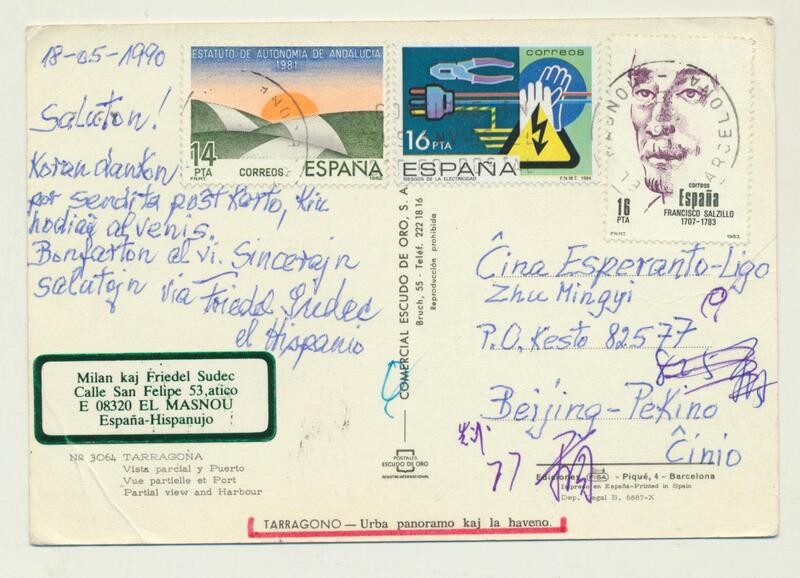 18-05-1990
Saluton!
Koran dankon
por sendita poŝtkarto, kiu
hodiaŭ alvenis.
Bonfarton al vi. Sincerajn
salutojn via Friedel Sudec
el Hispanio
Milan kaj Friedel Sudec
Calle San Felipe 53,atico
E 08320 EL MASNOU
España-Hispanujo
Nº 3064 TARRAGONA
Vista parcial y Puerto
Vue partielle et Port
Partial view and Harbour
TARRAGONO — Urba panoramo kaj la haveno.
ESTATUTO DE AUTONOMIA DE ANDALUCIA
1981
14
PTA CORREOS ESPAÑA
F.N.M.T. 1982
correos
16 PTA
ESPAÑA
RIESGOS DE LA ELECTRICIDAD F.N.M.T. 1984
correos
España
16 PTA
FRANCISCO SALZILLO
1707-1783
F.N.M.T. 1983
BARCELONA
COMERCIAL ESCUDO DE ORO, S. A.
Bruch, 55 - Teléf. 222 18 16
Reproducción prohibida
POSTALES
ESCUDO DE ORO
REGISTRO INTERNACIONAL
Ĉina Esperanto-Ligo
Zhu Mingyi
P.O. Kesto 82577
Beijing-Pekino
Ĉinio
77
Ediciones FISA - Piqué, 4 - Barcelona
Impreso en España-Printed in Spain
Dep. Legal B. 6887-X